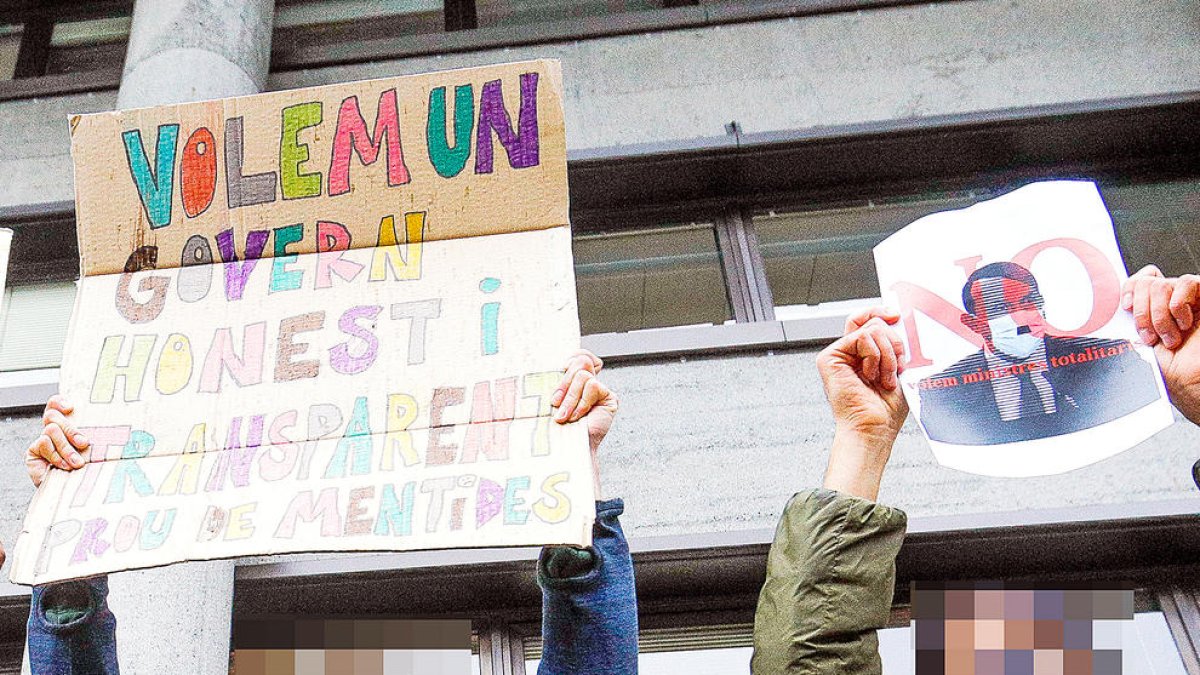 VOLEM UN
GOVERN
HONEST I
TRANSPARENT
PROU DE MENTIDES
NO
volem ministres totalitaris